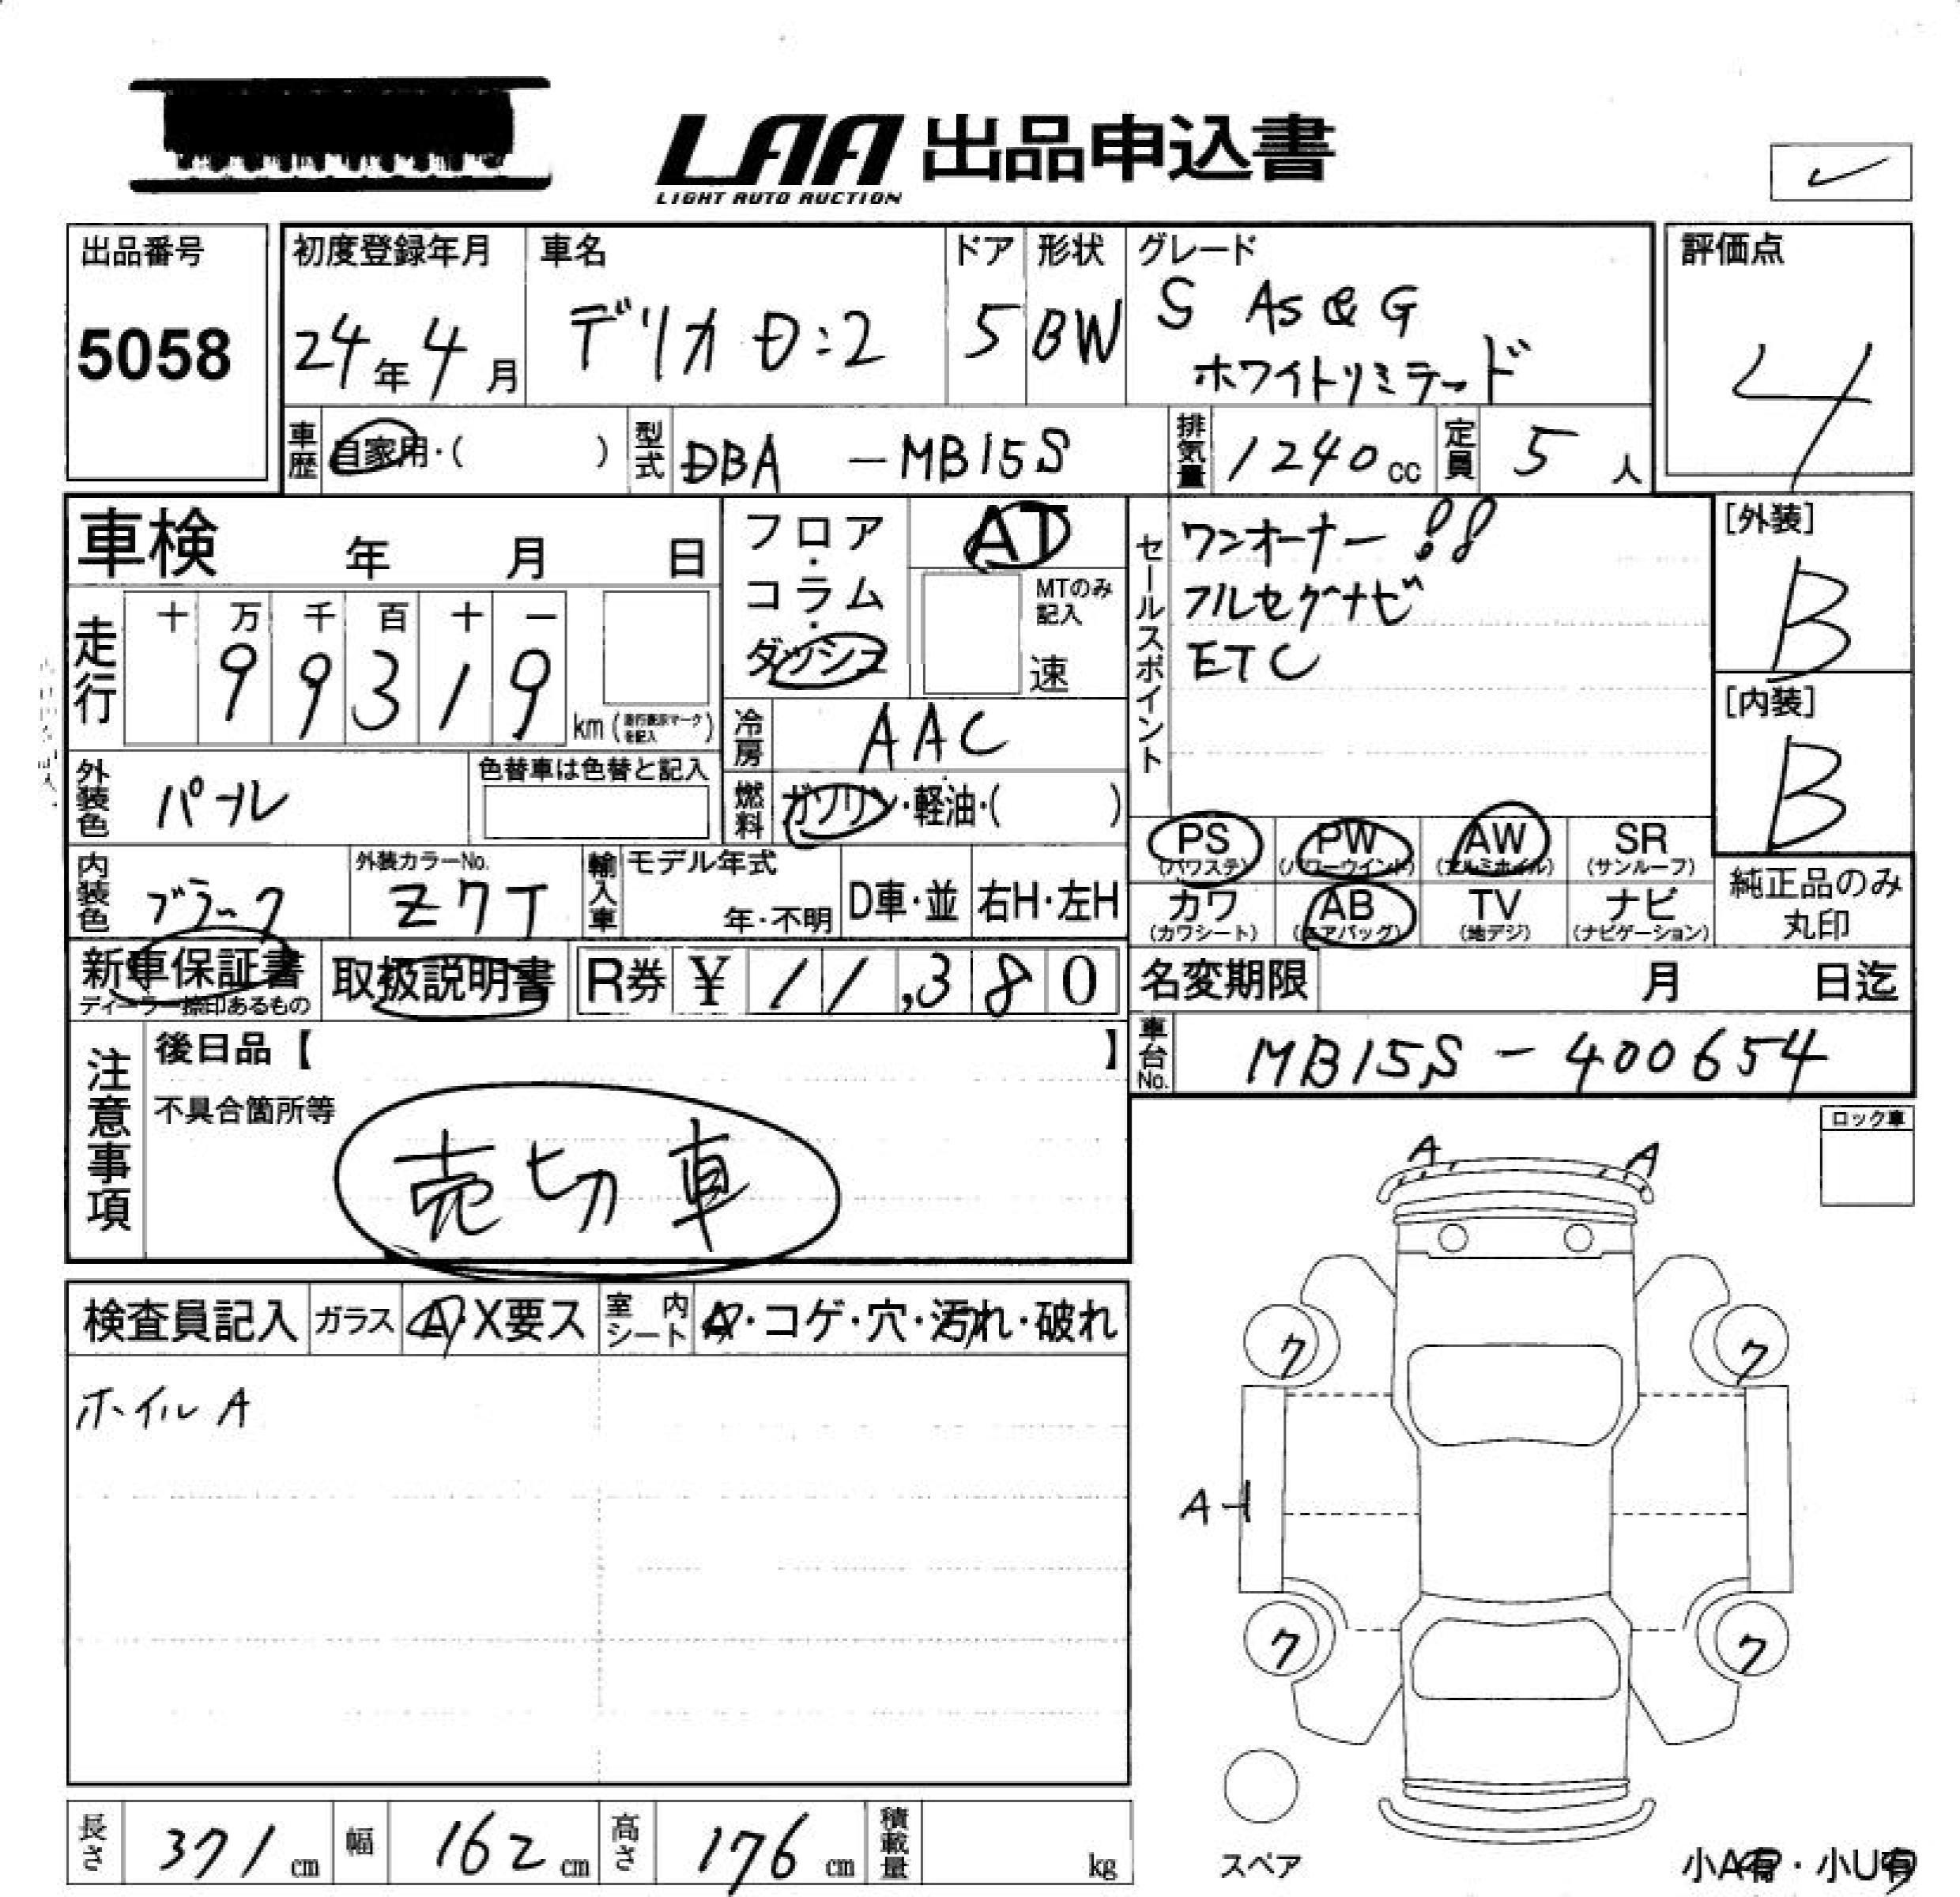 LAA 出品申込書
LIGHT AUTO AUCTION
出品番号
5058
初度登録年月
24年4月
車名
デリカ D:2
ドア
5
形状
BW
グレード
S AS&G
ホワイトリミテード
評価点
4
車歴 自家用・( )
型式 DBA -MB15S
排気量 1240cc
定員 5人
車検 年 月 日
走行
十 万 千 百 十 一
9 9 3 1 9
km(走行表示マークを記入)
フロア・コラム・ダッシュ
AT
MTのみ記入
速
冷房 AAC
燃料 ガソリン・軽油・( )
セールスポイント
ワンオーナー!!
フルセグナビ
ETC
[外装]
B
[内装]
B
外装色 パール
色替車は色替と記入
内装色 ブラック
外装カラーNo.
Z7T
輸入車
モデル年式
年・不明
D車・並
右H・左H
PS (パワステ)
PW (パワーウインド)
AW (アルミホイル)
SR (サンルーフ)
カワ (カワシート)
AB (エアバッグ)
TV (地デジ)
ナビ (ナビゲーション)
純正品のみ丸印
新車保証書
ディーラー捺印あるもの
取扱説明書
R券 ¥11,380
名変期限 月 日迄
車台No. MB15S-400654
注意事項
後日品【 】
不具合箇所等
売切車
ロック車
検査員記入
ガラス A・X要ス
室内シート A・コゲ・穴・汚れ・破れ
ホイルA
A A
ク ク
A
ク ク
スペア
小A有・小U有
長さ 371cm
幅 162cm
高さ 176cm
積載量 kg